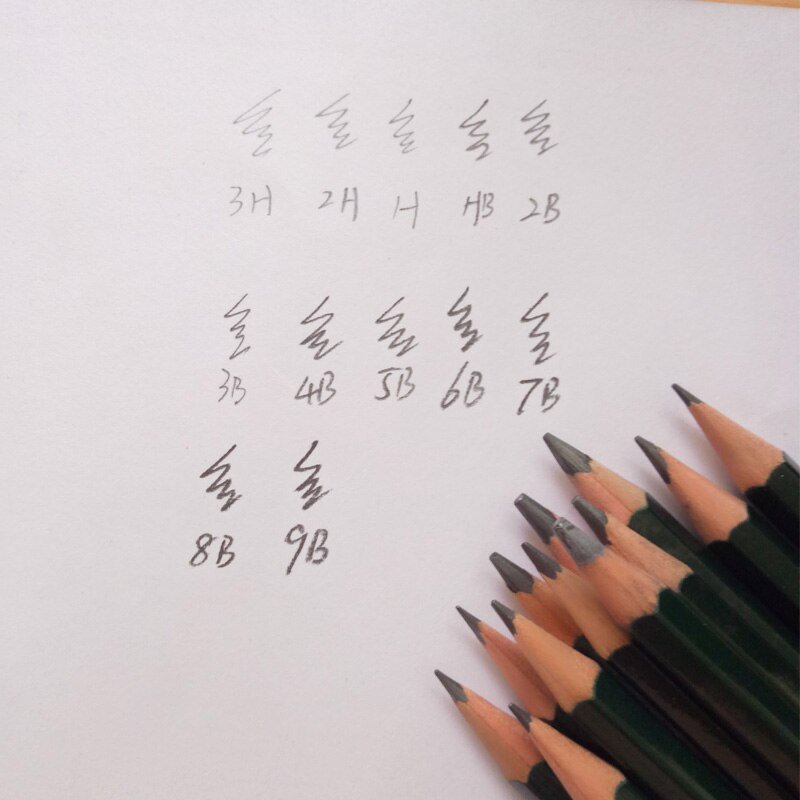 3H 2H H HB 2B
3B 4B 5B 6B 7B
8B 9B